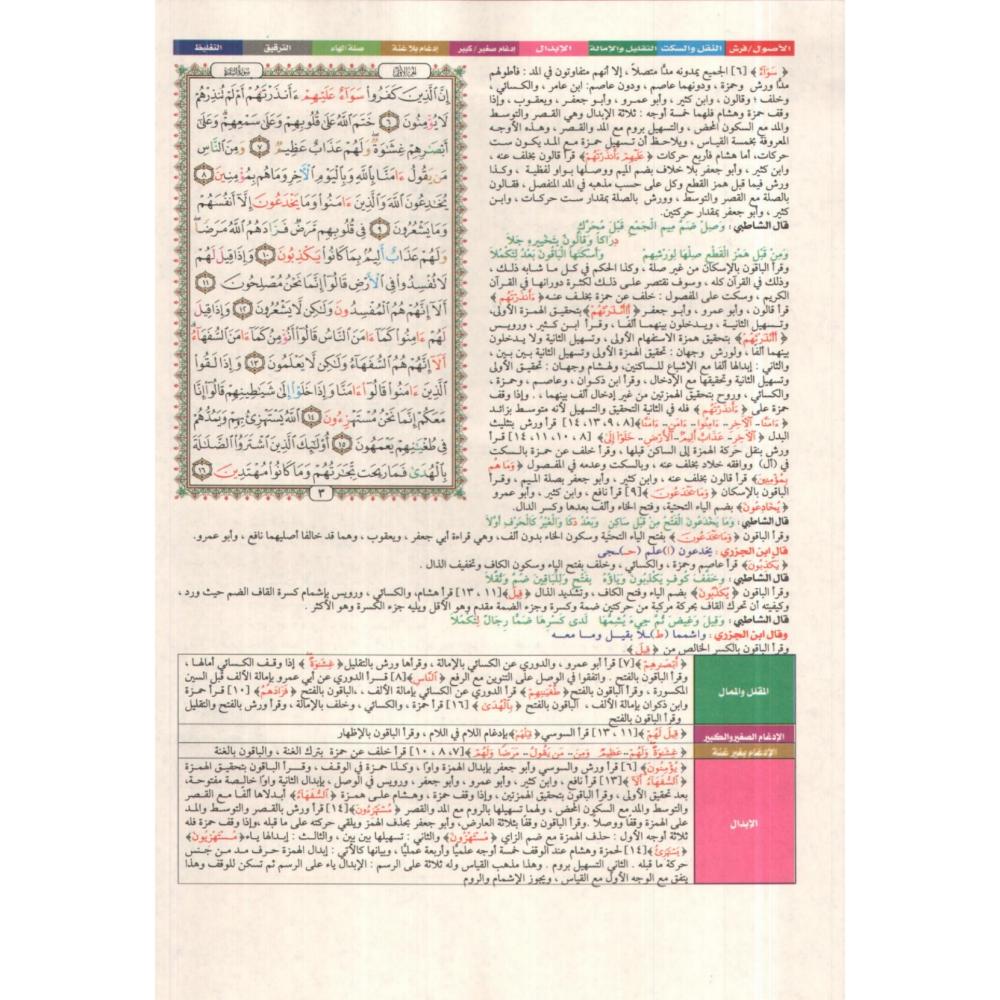 الأصول/فرش النقل والسكت التقليل والإمالة الإبدال إدغام صغير/كبير إدغام بلا غنة صلة الهاء الترقيق التغليظ
﴿ سَوَآءٌ ﴾ [٦] الجميع يمدونه مدًّا متصلاً ، إلا أنهم متفاوتون في المد : فأطولهم
مدًّا ورش وحمزة ، ودونهما عاصم ، ودون عاصم: ابن عامر ، والكسائي ،
وخلف ؛ وقالون ، وابن كثير ، وأبو عمرو ، وأبو جعفر ، ويعقوب ، وإذا
وقف حمزة وهشام فلهما خمسة أوجه : ثلاثة الإبدال وهي القصر والتوسط
والمد مع السكون المحض ، والتسهيل بروم مع المد والقصر ، وهذه الأوجه
المعروفة بخمسة القياس ، ويلاحظ أن تسهيل حمزة مع المد يكون ست
حركات، أما هشام فأربع حركات ﴿ عَلَيْهِمْ ءَأَنذَرْتَهُمْ ﴾ قرأ قالون بخلف عنه ،
وابن كثير ، وأبو جعفر بلا خلاف بضم الميم ووصلها بواو لفظية ، وكذا
ورش فيما قبل همز القطع وكل على حسب مذهبه في المد المنفصل ، فقالون
بالصلة مع القصر والتوسط ، وورش بالصلة بمقدار ست حركات ، وابن
كثير ، وأبو جعفر بمقدار حركتين.
قال الشاطبي : وَصِلْ ضَمَّ مِيمِ الْجَمْعِ قَبْلَ مُحَرَّكٍ
دِرَاكًا وَقَالُونٌ بِتَخْيِيرِهِ جَلَا
وَمِنْ قَبْلِ هَمْزِ الْقَطْعِ صِلْهَا لِوَرْشِهِمْ وَأَسْكَنَهَا الْبَاقُونَ بَعْدُ لِتَكْمُلَا
وقرأ الباقون بالإسكان من غير صلة ، وكذا الحكم في كل ما شابه ذلك ،
وذلك في القرآن كله ، وسوف نقتصر على ذلك لكثرة دورانها في القرآن
الكريم ، وسكت على المفصول : خلف عن حمزة بخلف عنه ﴿ ءَأَنذَرْتَهُمْ ﴾
قرأ قالون ، وأبو عمرو ، وأبو جعفر بتحقيق الهمزة الأولى،
وتسهيل الثانية ، ويدخلون بينهما ألفًا ، وقرأ ابن كثير ، ورويس
بتحقيق همزة الاستفهام الأولى ، وتسهيل الثانية ولا يدخلون
بينهما ألفًا ، ولورش وجهان : تحقيق الهمزة الأولى وتسهيل الثانية بين بين ،
والثاني : إبدالها ألفًا مع الإشباع للساكنين، ولهشام وجهان : تحقيق الأولى
وتسهيل الثانية وتحقيقها مع الإدخال ، وقرأ ابن ذكوان ، وعاصم ، وحمزة ،
والكسائي ، وروح بتحقيق الهمزتين من غير إدخال ألف بينهما ، . وإذا وقف
حمزة على ﴿ ءَأَنذَرْتَهُمْ ﴾ فله في الثانية التحقيق والتسهيل لأنه متوسط بزائد
﴿ ءَامَنَّا - ٱلْءَاخِرِ - ءَامِنُوا - ءَامَنَ - ءَامَنَّا ﴾ [٨، ٩، ١٣، ١٤] قرأ ورش بتثليث
البدل ﴿ ٱلْءَاخِرِ - عَذَابٌ أَلِيمٌ - ٱلْأَرْضِ - خَلَوْا إِلَىٰ ﴾ [٨، ١٠، ١١، ١٤] قرأ
ورش بنقل حركة الهمزة إلى الساكن قبلها ، وقرأ خلف عن حمزة بالسكت
في (أل) ووافقه خلاد بخلف عنه ، وبالسكت وعدمه في المفصول ﴿ وَمَا هُم
بِمُؤْمِنِينَ ﴾ قرأ قالون بخلف عنه ، وابن كثير ، وأبو جعفر بصلة الميم ، وقرأ
الباقون بالإسكان ﴿ وَمَا يَخْدَعُونَ ﴾ [٩] قرأ نافع ، وابن كثير ، وأبو عمرو
﴿ يُخَادِعُونَ ﴾ بضم الياء التحتية، وفتح الخاء وألف بعدها وكسر الدال.
قال الشاطبي : وَمَا يَخْدَعُونَ الْفَتْحُ مِنْ قَبْلِ سَاكِنٍ وَبَعْدُ ذَكَا وَالْغَيْرُ كَالْحَرْفِ أَوَّلَا
وقرأ الباقون ﴿ وَمَا يَخْدَعُونَ ﴾ بفتح الياء التحتية وسكون الخاء بدون ألف، وهي قراءة أبي جعفر ، ويعقوب ، وهما قد خالفا أصليهما نافع ، وأبو عمرو.
قال ابن الجزري : يخدعون (ا)علم (حـ)ـجى
﴿ يَكْذِبُونَ ﴾ قرأ عاصم وحمزة ، والكسائي ، وخلف بفتح الياء وسكون الكاف وتخفيف الذال .
قال الشاطبي : وَخَفَّفَ كُوفٍ يَكْذِبُونَ وَيَاؤُهُ بِفَتْحٍ وَلِلْبَاقِينَ ضُمَّ وَثُقِّلَا
وقرأ الباقون ﴿ يُكَذِّبُونَ ﴾ بضم الياء وفتح الكاف ، وتشديد الذال ﴿ قِيلَ ﴾ [١١ ، ١٣] قرأ هشام، والكسائي ، ورويس بإشمام كسرة القاف الضم حيث ورد ،
وكيفيته أن تحرك القاف بحركة مركبة من حركتين ضمة وكسرة وجزء الضمة مقدم وهو الأقل ويليه جزء الكسرة وهو الأكثر .
قال الشاطبي : وَقِيلَ وَغِيضَ ثُمَّ جِيءَ يُشِمُّهَا لَدَى كَسْرِهَا ضَمًّا رِجَالٌ لِتَكْمُلَا
وقال ابن الجزري : واشمما (ط)ـلا بقيل وما معه
وقرأ الباقون بالكسر الخالص من ﴿ قِيلَ ﴾.
الجزء الأول سورة البقرة
إِنَّ ٱلَّذِينَ كَفَرُوا۟ سَوَآءٌ عَلَيْهِمْ ءَأَنذَرْتَهُمْ أَمْ لَمْ تُنذِرْهُمْ
لَا يُؤْمِنُونَ ٦ خَتَمَ ٱللَّهُ عَلَىٰ قُلُوبِهِمْ وَعَلَىٰ سَمْعِهِمْ وَعَلَىٰ
أَبْصَٰرِهِمْ غِشَٰوَةٌ وَلَهُمْ عَذَابٌ عَظِيمٌ ٧ وَمِنَ ٱلنَّاسِ
مَن يَقُولُ ءَامَنَّا بِٱللَّهِ وَبِٱلْيَوْمِ ٱلْءَاخِرِ وَمَا هُم بِمُؤْمِنِينَ ٨
يُخَٰدِعُونَ ٱللَّهَ وَٱلَّذِينَ ءَامَنُوا۟ وَمَا يَخْدَعُونَ إِلَّآ أَنفُسَهُمْ
وَمَا يَشْعُرُونَ ٩ فِى قُلُوبِهِم مَّرَضٌ فَزَادَهُمُ ٱللَّهُ مَرَضًا
وَلَهُمْ عَذَابٌ أَلِيمٌۢ بِمَا كَانُوا۟ يَكْذِبُونَ ١٠ وَإِذَا قِيلَ لَهُمْ
لَا تُفْسِدُوا۟ فِى ٱلْأَرْضِ قَالُوٓا۟ إِنَّمَا نَحْنُ مُصْلِحُونَ ١١
أَلَآ إِنَّهُمْ هُمُ ٱلْمُفْسِدُونَ وَلَٰكِن لَّا يَشْعُرُونَ ١٢ وَإِذَا قِيلَ
لَهُمْ ءَامِنُوا۟ كَمَآ ءَامَنَ ٱلنَّاسُ قَالُوٓا۟ أَنُؤْمِنُ كَمَآ ءَامَنَ ٱلسُّفَهَآءُ
أَلَآ إِنَّهُمْ هُمُ ٱلسُّفَهَآءُ وَلَٰكِن لَّا يَعْلَمُونَ ١٣ وَإِذَا لَقُوا۟
ٱلَّذِينَ ءَامَنُوا۟ قَالُوٓا۟ ءَامَنَّا وَإِذَا خَلَوْا۟ إِلَىٰ شَيَٰطِينِهِمْ قَالُوٓا۟ إِنَّا
مَعَكُمْ إِنَّمَا نَحْنُ مُسْتَهْزِءُونَ ١٤ ٱللَّهُ يَسْتَهْزِئُ بِهِمْ وَيَمُدُّهُمْ
فِى طُغْيَٰنِهِمْ يَعْمَهُونَ ١٥ أُو۟لَٰٓئِكَ ٱلَّذِينَ ٱشْتَرَوُا۟ ٱلضَّلَٰلَةَ
بِٱلْهُدَىٰ فَمَا رَبِحَت تِّجَٰرَتُهُمْ وَمَا كَانُوا۟ مُهْتَدِينَ ١٦
٣
المقلل والممال
﴿ أَبْصَٰرِهِمْ ﴾ [٧] قرأ أبو عمرو ، والدوري عن الكسائي بالإمالة ، وقرأها ورش بالتقليل ﴿ غِشَٰوَةٌ ﴾ إذا وقف الكسائي أمالها ،
وقرأ الباقون بالفتح . واتفقوا في الوصل على التنوين مع الرفع ﴿ ٱلنَّاسِ ﴾ [٨] قرأ الدوري عن أبي عمرو بإمالة الألف قبل السين
المكسورة ، وقرأ الباقون بالفتح ﴿ طُغْيَٰنِهِمْ ﴾ قرأ الدوري عن الكسائي بإمالة الألف ، .الباقون بالفتح ﴿ فَزَادَهُمُ ﴾ [١٠] قرأ حمزة
وابن ذكوان بإمالة الألف ، الباقون بالفتح ﴿ بِٱلْهُدَىٰ ﴾ [١٦] قرأ حمزة ، والكسائي ، وخلف بالإمالة ، وقرأ ورش بالفتح والتقليل
وقرأ الباقون بالفتح
الإدغام الصغير والكبير
﴿ قِيلَ لَهُمْ ﴾ [١١ ، ١٣] قرأ السوسي ﴿ قِيلَّهُمْ ﴾ بإدغام اللام في اللام ، وقرأ الباقون بالإظهار
الإدغام بغير غنة
﴿ غِشَٰوَةٌ وَلَهُمْ - عَظِيمٌ وَمِنَ - مَن يَقُولُ - مَرَضًا وَلَهُمْ ﴾ [٧، ٨ ، ١٠] قرأ خلف عن حمزة بترك الغنة ، والباقون بالغنة
الإبدال
﴿ يُؤْمِنُونَ ﴾ [٦] قرأ ورش والسوسي وأبو جعفر بإبدال الهمزة واوًا ، وكذا حمزة في الوقف ، وقرأ الباقون بتحقيق الهمزة
﴿ ٱلسُّفَهَآءُ أَلَآ ﴾ [١٣] قرأ نافع ، وابن كثير ، وأبو عمرو ، وأبو جعفر ، ورويس في الوصل ، بإبدال الثانية واوًا خالصة مفتوحة،
بعد تحقيق الأولى ، وقرأ الباقون بتحقيق الهمزتين ، وإذا وقف حمزة ، وهشام على همزة ﴿ ٱلسُّفَهَآءُ ﴾ أبدلاها ألفًا مع القصر
والتوسط والمد مع السكون المحض ، ولهما تسهيلها بالروم مع المد والقصر ﴿ مُسْتَهْزِءُونَ ﴾ [١٤] قرأ ورش بالقصر والتوسط والمد
على الهمزة وقفًا ووصلاً .وقرأ الباقون وقفًا بثلاثة العارض، وأبو جعفر بحذف الهمز ويلقي حركته على ما قبله ،وإذا وقف حمزة فله
ثلاثة أوجه الأول : حذف الهمزة مع ضم الزاي ﴿ مُسْتَهْزُونَ ﴾ والثاني : تسهيلها بين بين ، والثالث : إبدالها ياء ﴿ مُسْتَهْزِيُونَ ﴾
﴿ يَسْتَهْزِئُ ﴾ [١٤] لحمزة وهشام عند الوقف خمسة أوجه علميًّا وأربعة عمليًّا ، وبيانها كالآتي : إبدال الهمزة حرف مد من جنس
حركة ما قبله . الثاني التسهيل بروم . وهذا مذهب القياس وله ثلاثة على الرسم : إبدال الياء على الرسم ثم تسكن للوقف وهذا
يتفق مع الوجه الأول مع القياس ، ويجوز الإشمام والروم